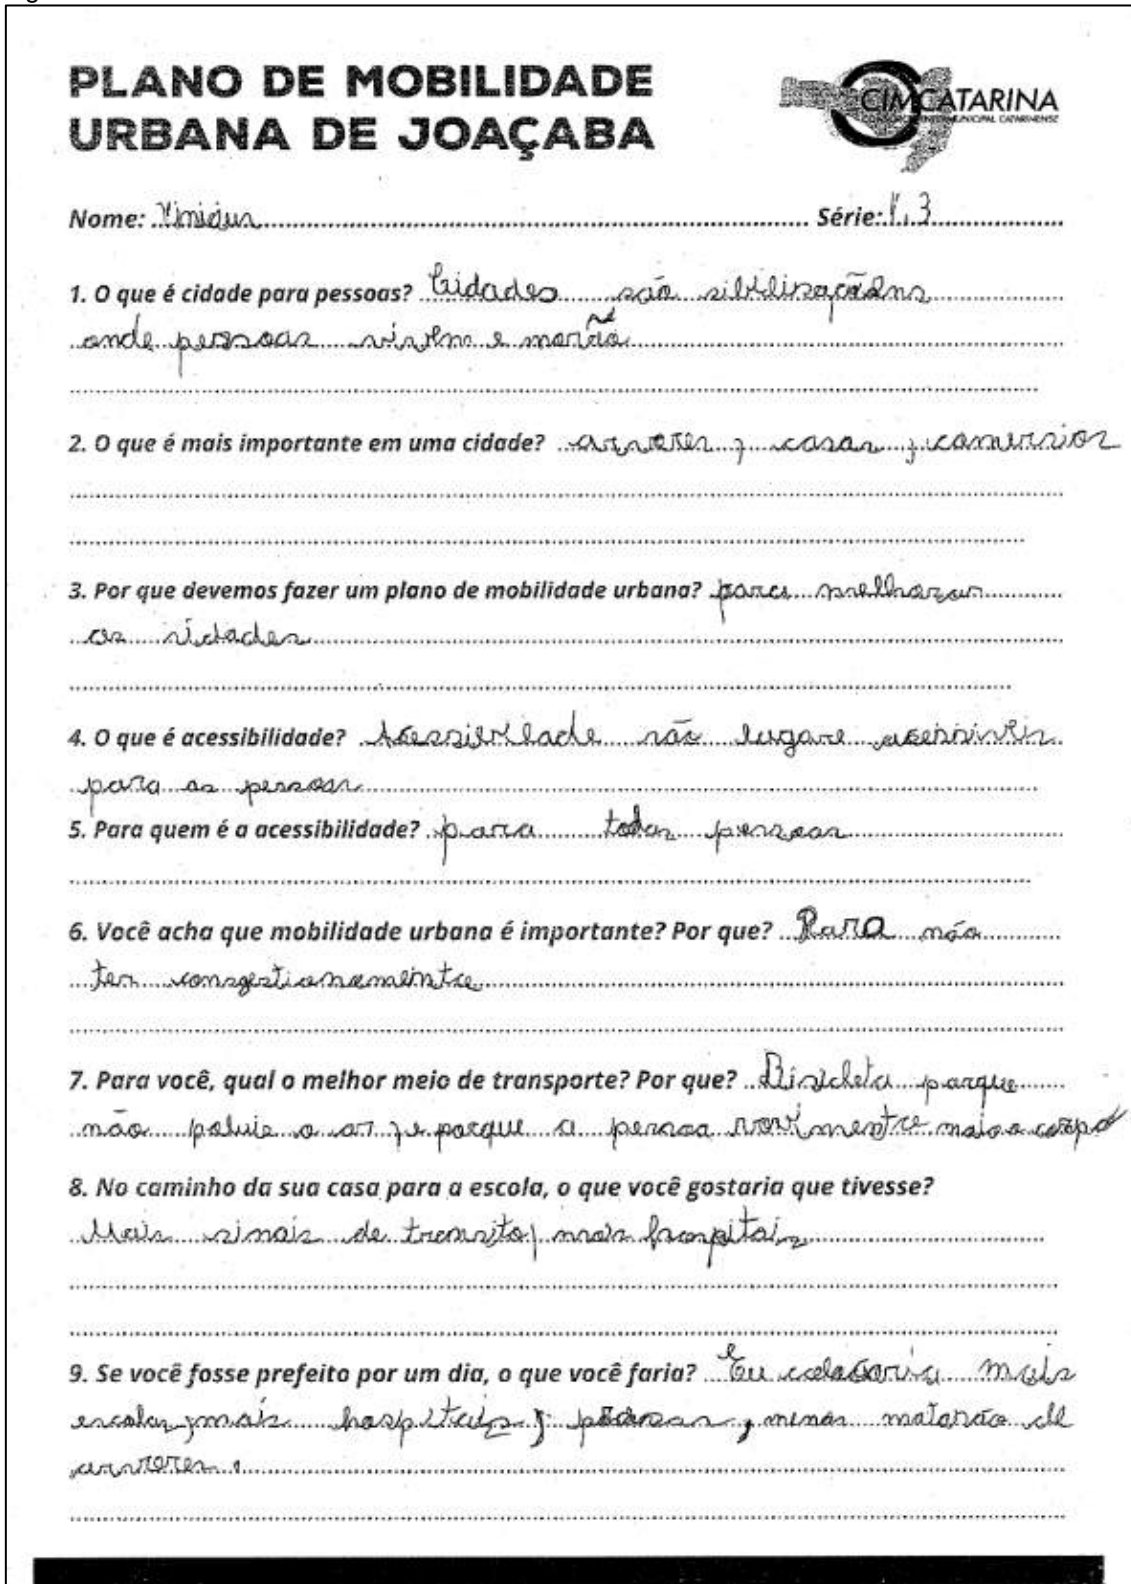 PLANO DE MOBILIDADE
URBANA DE JOAÇABA
CIMCATARINA
CONSÓRCIO INTERMUNICIPAL CATARINENSE
Nome: Série: 3
1. O que é cidade para pessoas? Cidades são
onde pessoas vivem e
2. O que é mais importante em uma cidade? arvores, casas, comersios
3. Por que devemos fazer um plano de mobilidade urbana? para melhorar
as sidades
4. O que é acessibilidade? são lugare
para as pessoas
5. Para quem é a acessibilidade? para todas pessoas
6. Você acha que mobilidade urbana é importante? Por que? Para não
ter
7. Para você, qual o melhor meio de transporte? Por que? porque
não poluie o ar, e porque a pessoa mais o corpo
8. No caminho da sua casa para a escola, o que você gostaria que tivesse?
Mais sinais de transito, mais hospitais
9. Se você fosse prefeito por um dia, o que você faria? Eu mais
escolas, mais hospitais, menas de
arvores.